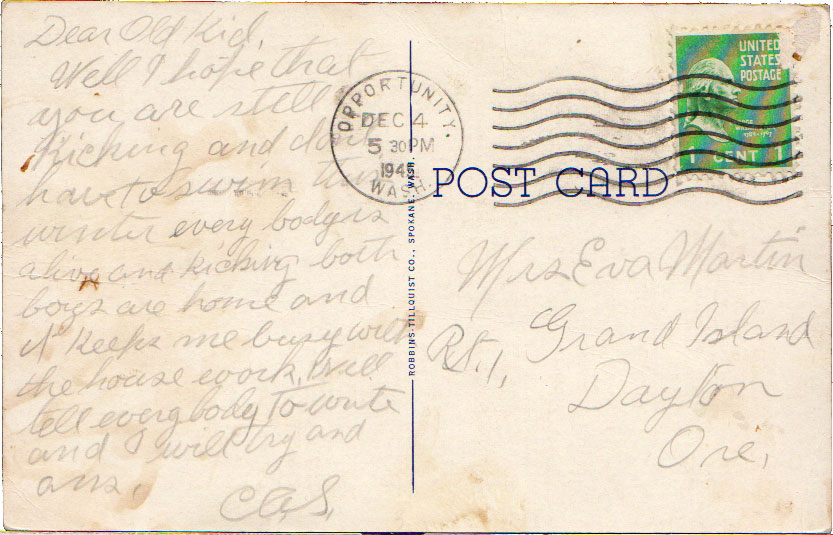 Dear Old Kid,
Well I hope that
you are still
kicking and dont
have to swim this
winter every body is
alive and kicking both
boys are home and
it keeps me busy with
the house work. Will
tell everybody to write
and I will try and
ans.
C.A.S.
OPPORTUNITY.
DEC 4
5 30 PM
WASH.
UNITED
STATES
POSTAGE
1 CENT 1
POST CARD
ROBBINS-TILLQUIST CO., SPOKANE, WASH.
Mrs Eva Martin
Rt. 1, Grand Island
Dayton
Ore.